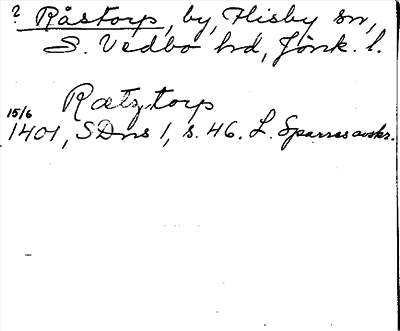 ? Råstorp, by, Flisby sn,
S. Vedbo hd, Jönk. l.
Rætztorp
15/6
1401, SDns 1, s. 46. L. Sparres avskr.